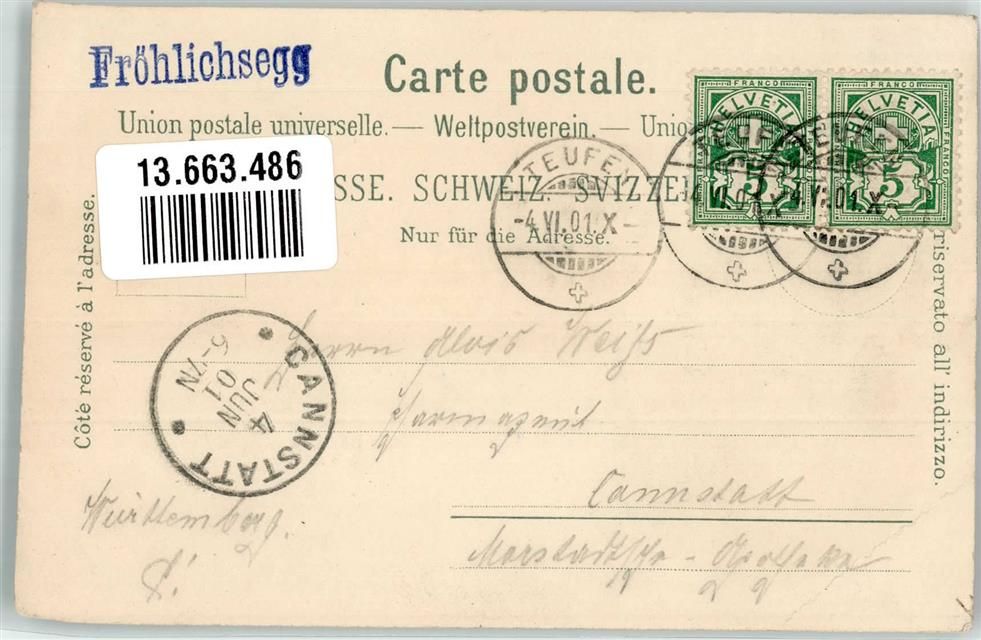 Fröhlichsegg
Carte postale.
Union postale universelle. — Weltpostverein. — Unio
13.663.486
SSE. SCHWEIZ. SVIZZER
Nur für die Adresse.
Côté réservé à l'adresse.
riservato all' indirizzo.
FRANCO
HELVETIA
5
FRANCO
HELVETIA
5
TEUFEN
-4.VI.01.X-
TEUFEN
4.VI.01.X
CANNSTATT
4
JUN
01
6-7N
Herrn Alois Weiß
Pharmazeut
Cannstatt
Württemberg.
Apotheke